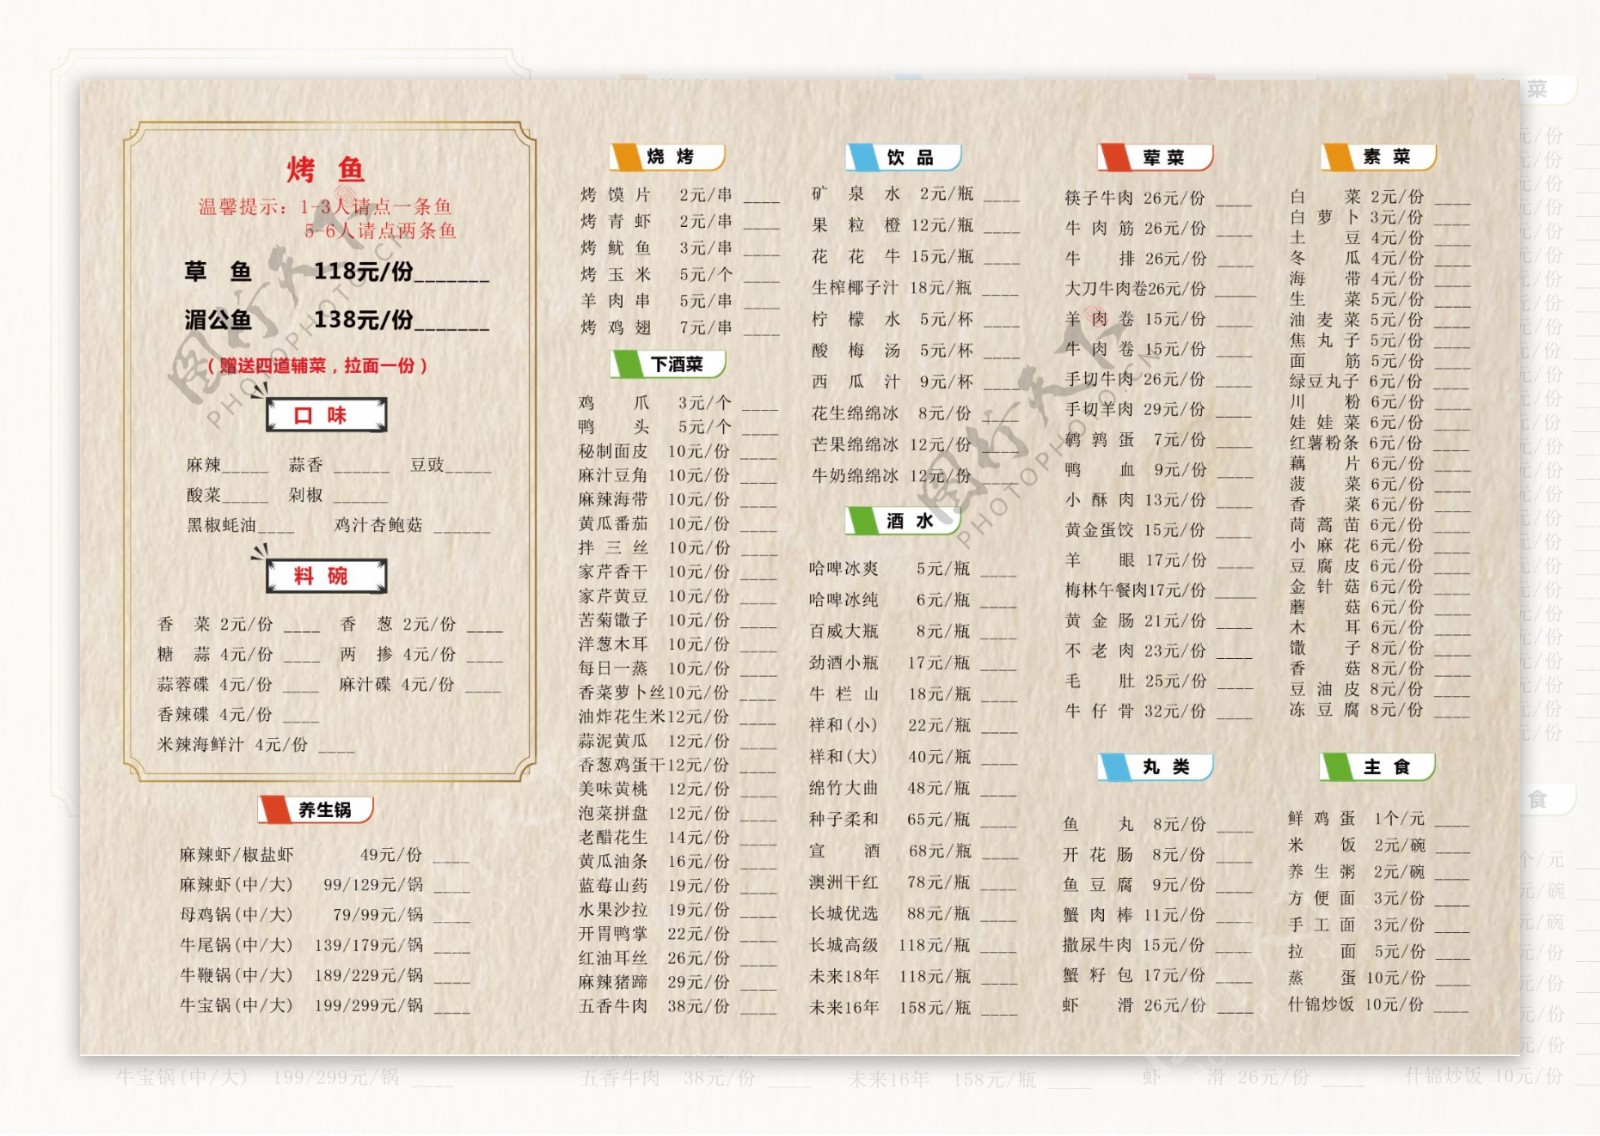 烤 鱼
温馨提示：1-3人请点一条鱼
5-6人请点两条鱼
草 鱼 118元/份_______
湄公鱼 138元/份_______
（赠送四道辅菜，拉面一份）
口 味
麻辣_____ 蒜香 ______ 豆豉_____
酸菜_____ 剁椒 ______
黑椒蚝油____ 鸡汁杏鲍菇 ______
料 碗
香 菜 2元/份 ____ 香 葱 2元/份 ____
糖 蒜 4元/份 ____ 两 掺 4元/份 ____
蒜蓉碟 4元/份 ____ 麻汁碟 4元/份 ____
香辣碟 4元/份 ____
米辣海鲜汁 4元/份 ____
养生锅
麻辣虾/椒盐虾 49元/份 ____
麻辣虾(中/大) 99/129元/锅 ____
母鸡锅(中/大) 79/99元/锅 ____
牛尾锅(中/大) 139/179元/锅 ____
牛鞭锅(中/大) 189/229元/锅 ____
牛宝锅(中/大) 199/299元/锅 ____
烧 烤
烤 馍 片 2元/串 ____
烤 青 虾 2元/串 ____
烤 鱿 鱼 3元/串 ____
烤 玉 米 5元/个 ____
羊 肉 串 5元/串 ____
烤 鸡 翅 7元/串 ____
下酒菜
鸡 爪 3元/个 ____
鸭 头 5元/个 ____
秘制面皮 10元/份 ____
麻汁豆角 10元/份 ____
麻辣海带 10元/份 ____
黄瓜番茄 10元/份 ____
拌 三 丝 10元/份 ____
家芹香干 10元/份 ____
家芹黄豆 10元/份 ____
苦菊馓子 10元/份 ____
洋葱木耳 10元/份 ____
每日一蒸 10元/份 ____
香菜萝卜丝10元/份 ____
油炸花生米12元/份 ____
蒜泥黄瓜 12元/份 ____
香葱鸡蛋干12元/份 ____
美味黄桃 12元/份 ____
泡菜拼盘 12元/份 ____
老醋花生 14元/份 ____
黄瓜油条 16元/份 ____
蓝莓山药 19元/份 ____
水果沙拉 19元/份 ____
开胃鸭掌 22元/份 ____
红油耳丝 26元/份 ____
麻辣猪蹄 29元/份 ____
五香牛肉 38元/份 ____
饮 品
矿 泉 水 2元/瓶 ____
果 粒 橙 12元/瓶 ____
花 花 牛 15元/瓶 ____
生榨椰子汁 18元/瓶 ____
柠 檬 水 5元/杯 ____
酸 梅 汤 5元/杯 ____
西 瓜 汁 9元/杯 ____
花生绵绵冰 8元/份 ____
芒果绵绵冰 12元/份 ____
牛奶绵绵冰 12元/份 ____
酒 水
哈啤冰爽 5元/瓶 ____
哈啤冰纯 6元/瓶 ____
百威大瓶 8元/瓶 ____
劲酒小瓶 17元/瓶 ____
牛 栏 山 18元/瓶 ____
祥和(小) 22元/瓶 ____
祥和(大) 40元/瓶 ____
绵竹大曲 48元/瓶 ____
种子柔和 65元/瓶 ____
宣 酒 68元/瓶 ____
澳洲干红 78元/瓶 ____
长城优选 88元/瓶 ____
长城高级 118元/瓶 ____
未来18年 118元/瓶 ____
未来16年 158元/瓶 ____
荤 菜
筷子牛肉 26元/份 ____
牛 肉 筋 26元/份 ____
牛 排 26元/份 ____
大刀牛肉卷26元/份 ____
羊 肉 卷 15元/份 ____
牛 肉 卷 15元/份 ____
手切牛肉 26元/份 ____
手切羊肉 29元/份 ____
鹌 鹑 蛋 7元/份 ____
鸭 血 9元/份 ____
小 酥 肉 13元/份 ____
黄金蛋饺 15元/份 ____
羊 眼 17元/份 ____
梅林午餐肉17元/份 ____
黄 金 肠 21元/份 ____
不 老 肉 23元/份 ____
毛 肚 25元/份 ____
牛 仔 骨 32元/份 ____
丸 类
鱼 丸 8元/份 ____
开 花 肠 8元/份 ____
鱼 豆 腐 9元/份 ____
蟹 肉 棒 11元/份 ____
撒尿牛肉 15元/份 ____
蟹 籽 包 17元/份 ____
虾 滑 26元/份 ____
素 菜
白 菜 2元/份 ____
白 萝 卜 3元/份 ____
土 豆 4元/份 ____
冬 瓜 4元/份 ____
海 带 4元/份 ____
生 菜 5元/份 ____
油 麦 菜 5元/份 ____
焦 丸 子 5元/份 ____
面 筋 5元/份 ____
绿豆丸子 6元/份 ____
川 粉 6元/份 ____
娃 娃 菜 6元/份 ____
红薯粉条 6元/份 ____
藕 片 6元/份 ____
菠 菜 6元/份 ____
香 菜 6元/份 ____
茼 蒿 苗 6元/份 ____
小 麻 花 6元/份 ____
豆 腐 皮 6元/份 ____
金 针 菇 6元/份 ____
蘑 菇 6元/份 ____
木 耳 6元/份 ____
馓 子 8元/份 ____
香 菇 8元/份 ____
豆 油 皮 8元/份 ____
冻 豆 腐 8元/份 ____
主 食
鲜 鸡 蛋 1个/元 ____
米 饭 2元/碗 ____
养 生 粥 2元/碗 ____
方 便 面 3元/份 ____
手 工 面 3元/份 ____
拉 面 5元/份 ____
蒸 蛋 10元/份 ____
什锦炒饭 10元/份 ____
图行天下
PHOTOPHOTO.CN
图行天下
PHOTOPHOTO.CN
菜
食
牛宝锅(中/大) 199/299元/锅 ____
五香牛肉 38元/份 ____
未来16年 158元/瓶 ____
虾 滑 26元/份 ____
什锦炒饭 10元/份 ____